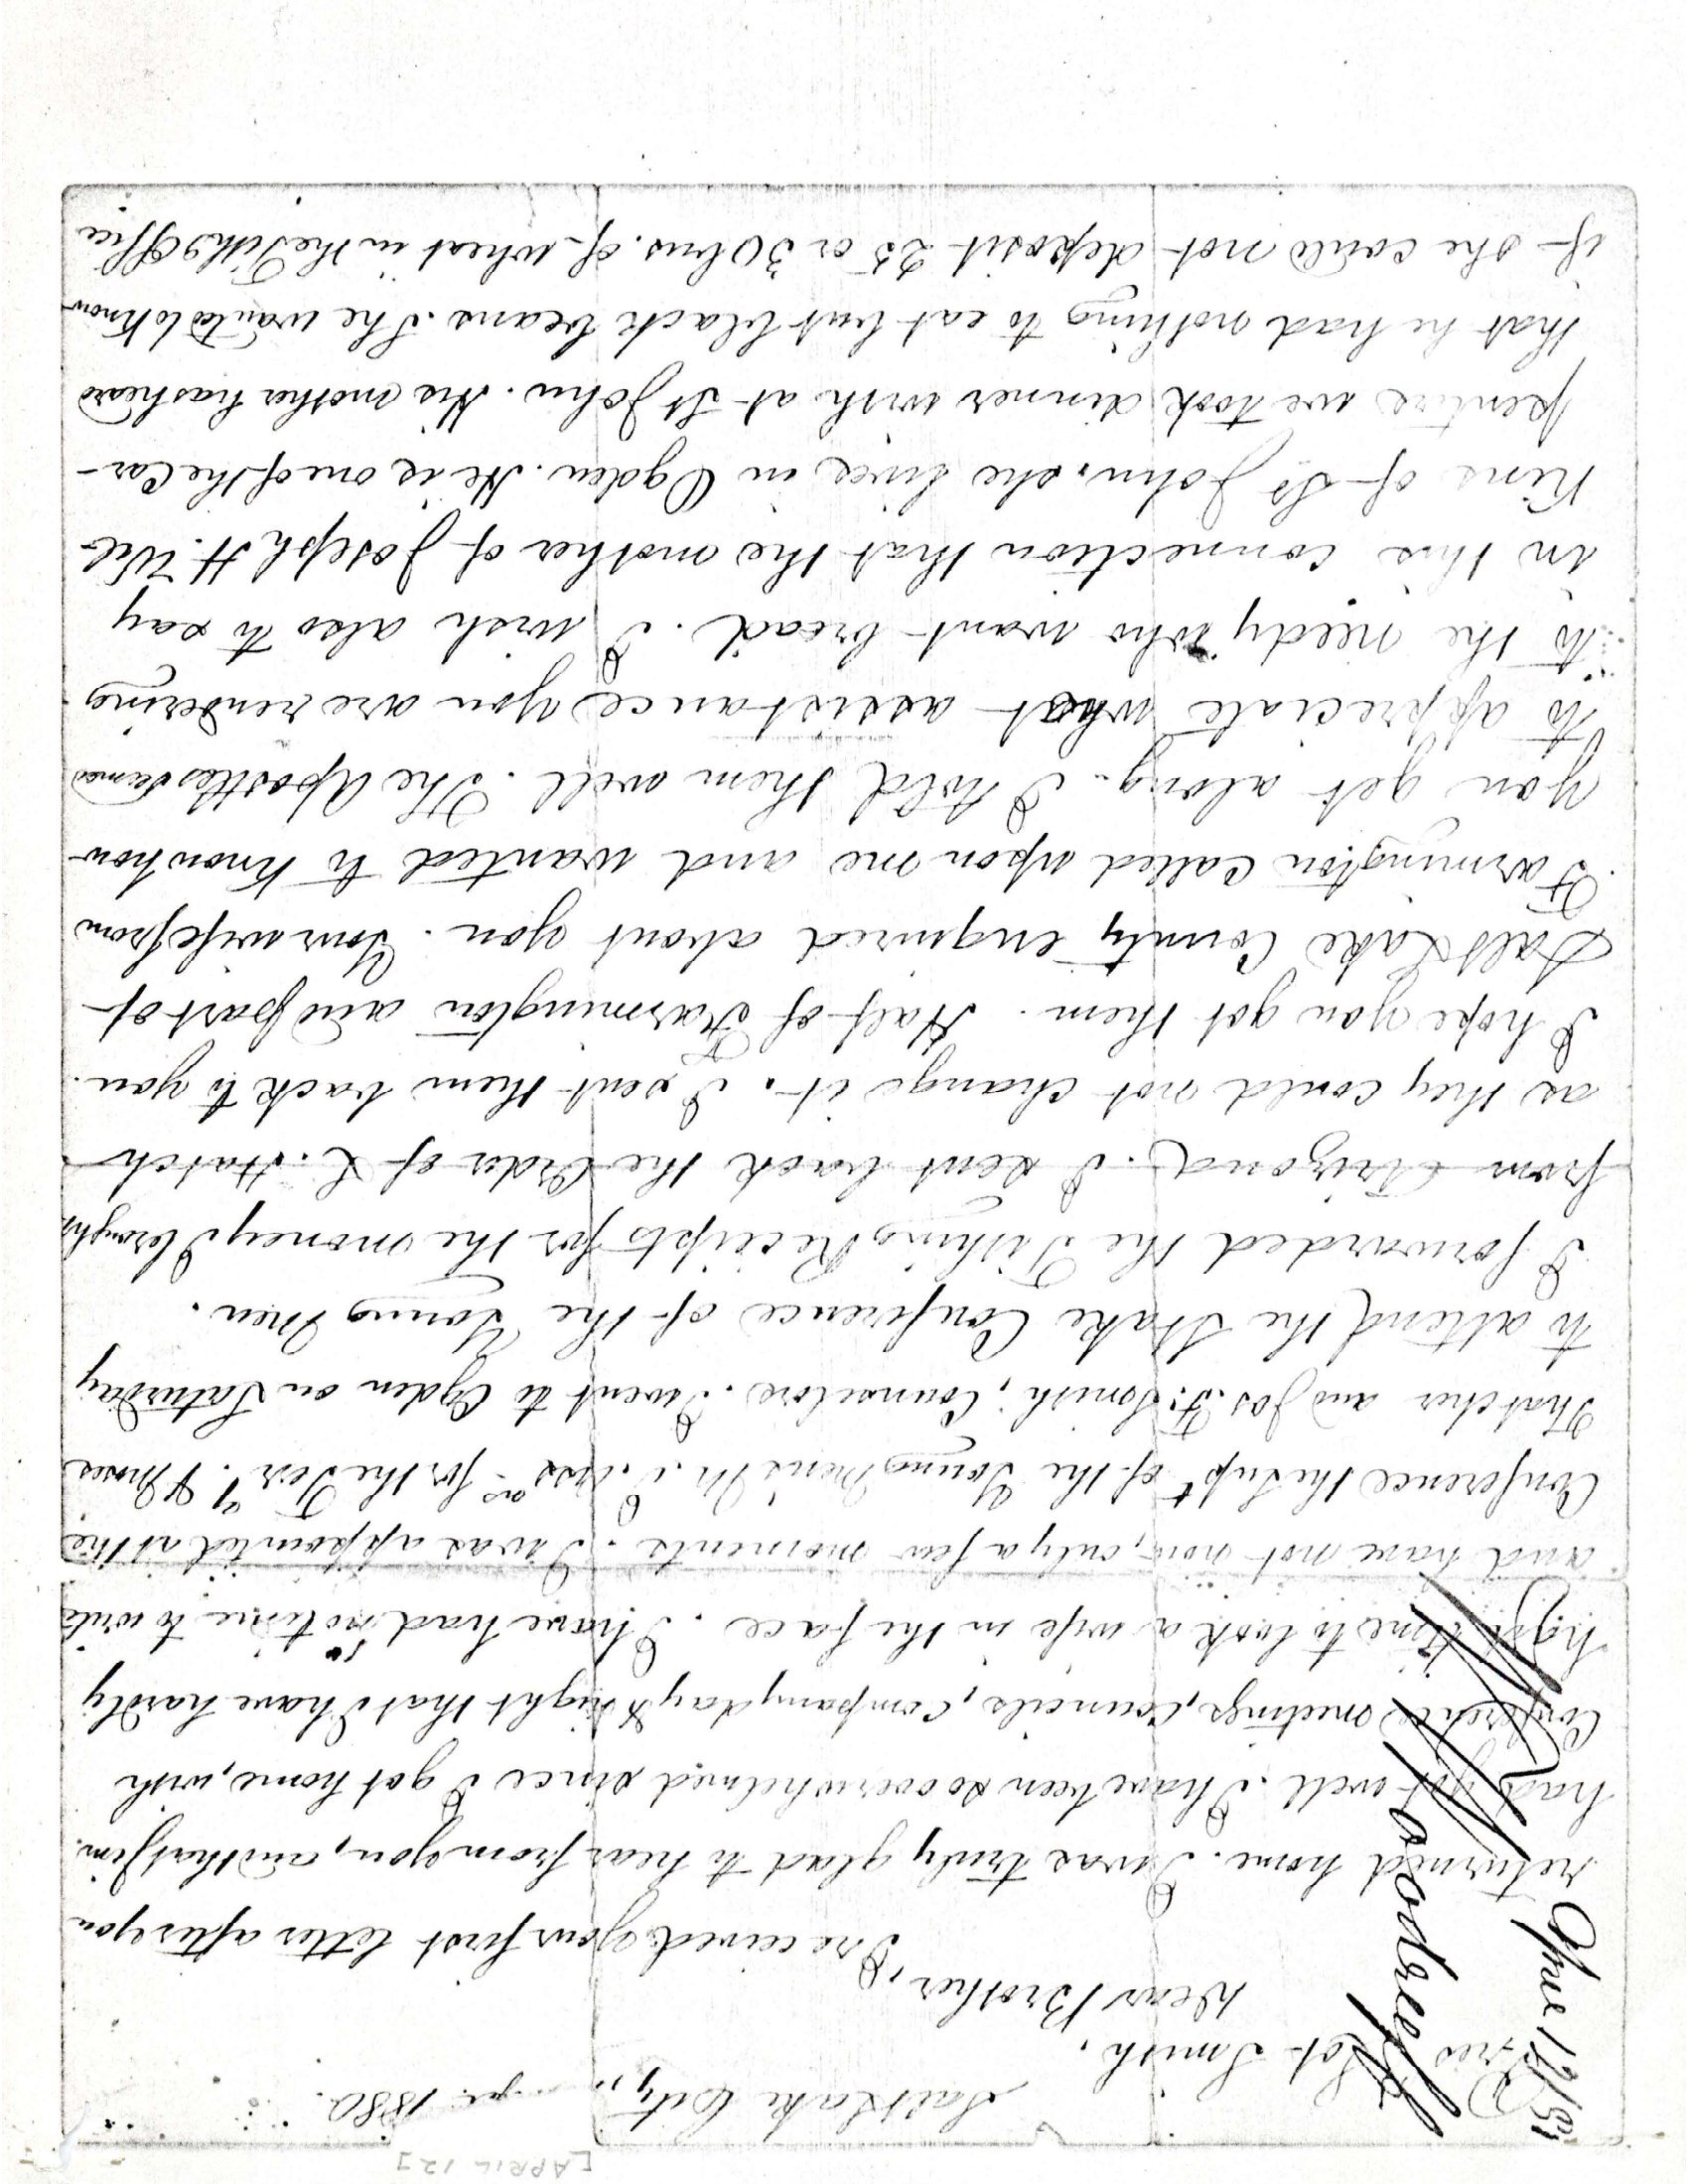 [APRIL 12]
Salt Lake City, 1880.
Pres Lot Smith.
Dear Brother,
I received your first letter after you
returned home. I was truly glad to hear from you, and that Jim
had got well. I have been so overwhelmed since I got home, with
Conference meetings, Councils, Company day & night that I have hardly
had time to look a wife in the face. I have had no time to write
and have not now, only a few moments. I was appointed at the
Conference the Supt of the Young Mens M. I. Assn for the Ter. & Moses
Thatcher and Jos. F. Smith, Counselors. I went to Ogden on Saturday
to attend the Stake Conference of the Young Men.
I forwarded the Tithing Reciepts for the money I brought
from Arizona. I sent back the Order of L. Hatch
as they could not change it. I sent them back to you.
I hope you got them. Half of Farmington and part of
Salt Lake County enquired about you. Your wife from
Farmington called upon me and wanted to know how
you get along. I told them well. The Apostles seemed
to appreciate what assistance you are rendering
to the needy who want bread. I wish also to say
in this connection that the mother of Joseph H. Wat-
kins of St John. she lives in Ogden. He is one of the Car-
penters we took dinner with at St John. His mother has heard
that he had nothing to eat but black beans. She wanted to know
if she could not deposit 25 or 30 bus. of wheat in the Tithg Office
W Woodruff
Apr 12/80